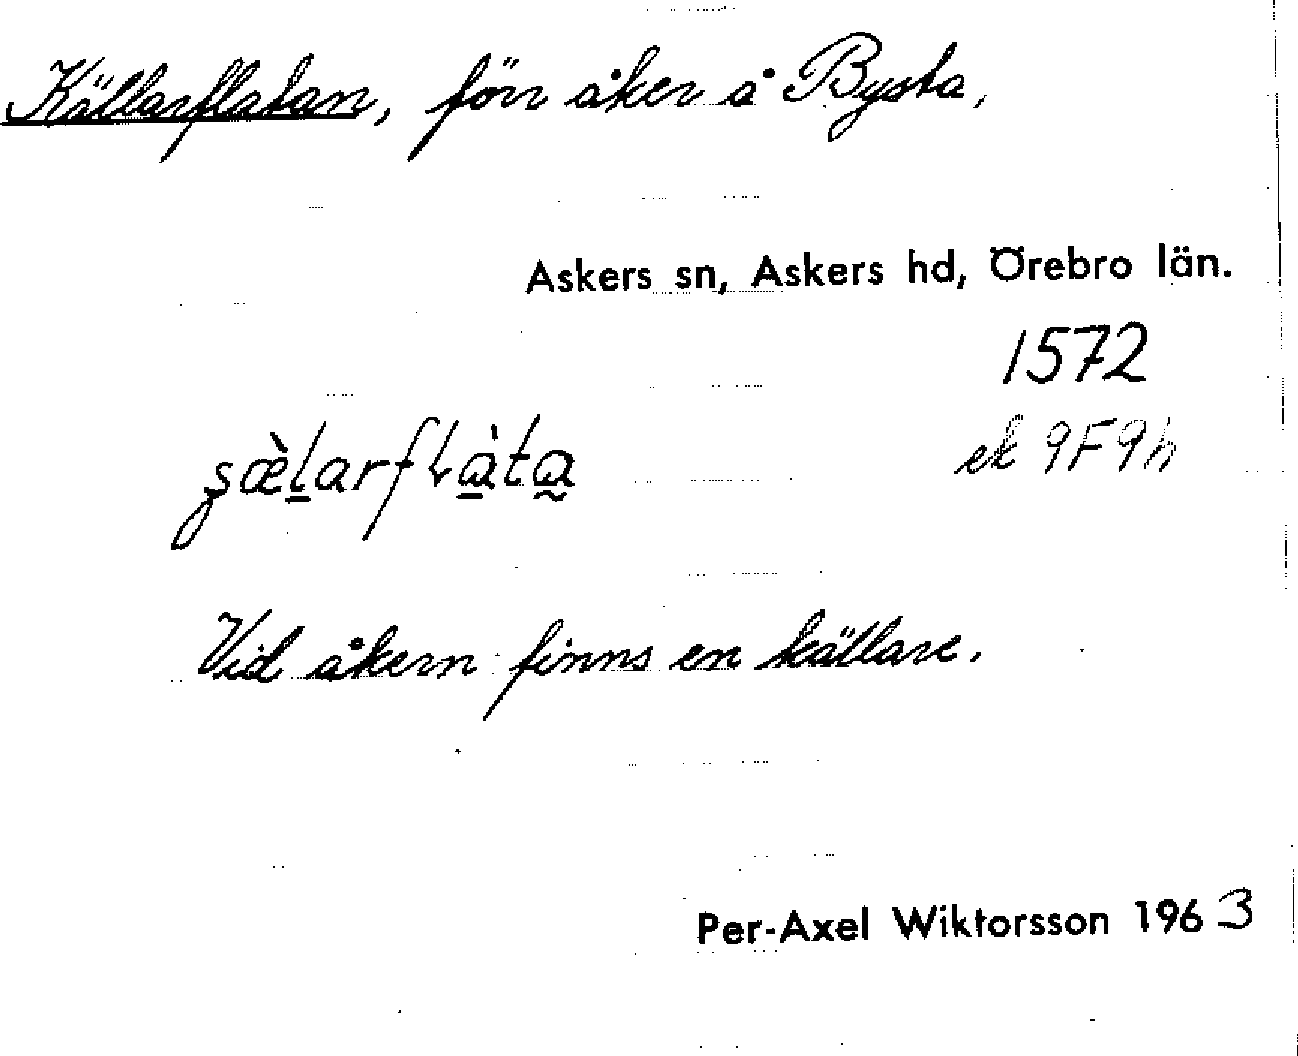 Källarflatan, förr åker å Bysta,
Askers sn, Askers hd, Örebro län.
1572
ek 9F9h
Vid åkern finns en källare.
Per-Axel Wiktorsson 1963